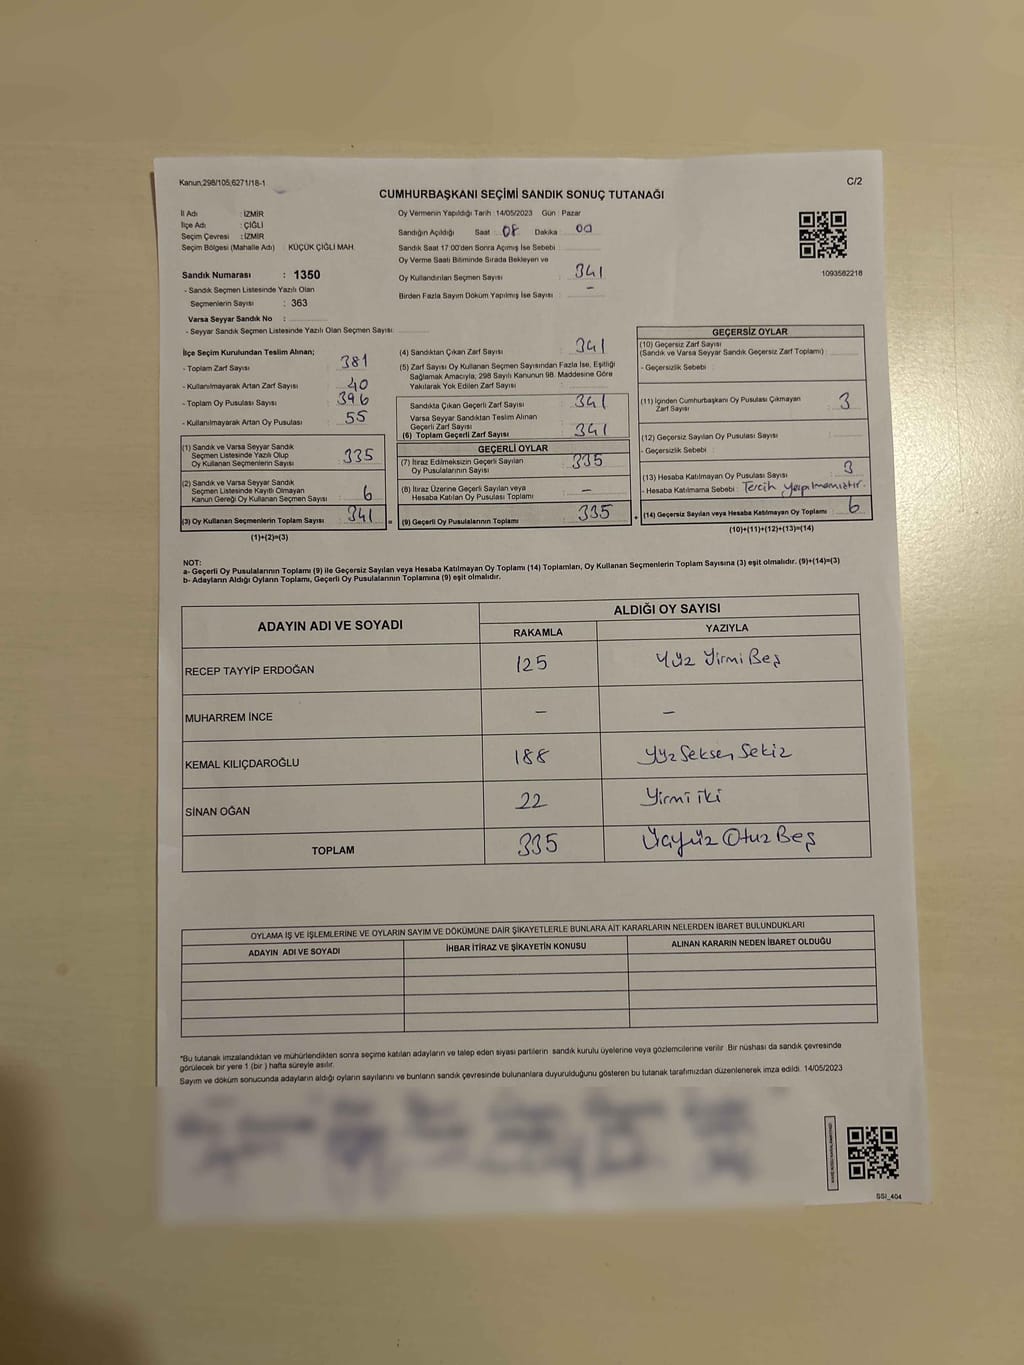 Kanun,298/105,6271/18-1
C/2
CUMHURBAŞKANI SEÇİMİ SANDIK SONUÇ TUTANAĞI
İl Adı : İZMİR
İlçe Adı : ÇİĞLİ
Seçim Çevresi : İZMİR
Seçim Bölgesi (Mahalle Adı) : KÜÇÜK ÇİĞLİ MAH.
Sandık Numarası : 1350
- Sandık Seçmen Listesinde Yazılı Olan
Seçmenlerin Sayısı : 363
Varsa Seyyar Sandık No :
- Seyyar Sandık Seçmen Listesinde Yazılı Olan Seçmen Sayısı:
Oy Vermenin Yapıldığı Tarih :14/05/2023 Gün : Pazar
Sandığın Açıldığı Saat : 08 Dakika : 00
Sandık Saat 17:00'den Sonra Açımış İse Sebebi :
Oy Verme Saati Bitiminde Sırada Bekleyen ve
Oy Kullandırılan Seçmen Sayısı : 341
Birden Fazla Sayım Döküm Yapılmış İse Sayısı : –
1093582218
İlçe Seçim Kurulundan Teslim Alınan;
- Toplam Zarf Sayısı : 381
- Kullanılmayarak Artan Zarf Sayısı : 40
- Toplam Oy Pusulası Sayısı : 396
- Kullanılmayarak Artan Oy Pusulası : 55
(1) Sandık ve Varsa Seyyar Sandık
Seçmen Listesinde Yazılı Olup
Oy Kullanan Seçmenlerin Sayısı : 335
(2) Sandık ve Varsa Seyyar Sandık
Seçmen Listesinde Kayıtlı Olmayan
Kanun Gereği Oy Kullanan Seçmen Sayısı : 6
(3) Oy Kullanan Seçmenlerin Toplam Sayısı : 341 =
(1)+(2)=(3)
(4) Sandıktan Çıkan Zarf Sayısı : 341
(5) Zarf Sayısı Oy Kullanan Seçmen Sayısından Fazla İse, Eşitliği
Sağlamak Amacıyla, 298 Sayılı Kanunun 98. Maddesine Göre
Yakılarak Yok Edilen Zarf Sayısı :
Sandıkta Çıkan Geçerli Zarf Sayısı : 341
Varsa Seyyar Sandıktan Teslim Alınan
Geçerli Zarf Sayısı :
(6) Toplam Geçerli Zarf Sayısı : 341
GEÇERLİ OYLAR
(7) İtiraz Edilmeksizin Geçerli Sayılan
Oy Pusulalarının Sayısı : 335
(8) İtiraz Üzerine Geçerli Sayılan veya
Hesaba Katılan Oy Pusulası Toplamı : –
(9) Geçerli Oy Pusulalarının Toplamı : 335 +
GEÇERSİZ OYLAR
(10) Geçersiz Zarf Sayısı
(Sandık ve Varsa Seyyar Sandık Geçersiz Zarf Toplamı) :
- Geçersizlik Sebebi :
(11) İçinden Cumhurbaşkanı Oy Pusulası Çıkmayan
Zarf Sayısı : 3
(12) Geçersiz Sayılan Oy Pusulası Sayısı :
- Geçersizlik Sebebi :
(13) Hesaba Katılmayan Oy Pusulası Sayısı : 3
- Hesaba Katılmama Sebebi : Tercih yapılmamıştır.
(14) Geçersiz Sayılan veya Hesaba Katılmayan Oy Toplamı : 6
(10)+(11)+(12)+(13)=(14)
NOT:
a- Geçerli Oy Pusulalarının Toplamı (9) ile Geçersiz Sayılan veya Hesaba Katılmayan Oy Toplamı (14) Toplamları, Oy Kullanan Seçmenlerin Toplam Sayısına (3) eşit olmalıdır. (9)+(14)=(3)
b- Adayların Aldığı Oyların Toplamı, Geçerli Oy Pusulalarının Toplamına (9) eşit olmalıdır.
ADAYIN ADI VE SOYADI
ALDIĞI OY SAYISI
RAKAMLA YAZIYLA
RECEP TAYYİP ERDOĞAN 125 Yüz Yirmi Beş
MUHARREM İNCE – –
KEMAL KILIÇDAROĞLU 188 Yüz Seksen Sekiz
SİNAN OĞAN 22 Yirmi iki
TOPLAM 335 Üçyüz Otuz Beş
OYLAMA İŞ VE İŞLEMLERİNE VE OYLARIN SAYIM VE DÖKÜMÜNE DAİR ŞİKAYETLERLE BUNLARA AİT KARARLARIN NELERDEN İBARET BULUNDUKLARI
ADAYIN ADI VE SOYADI İHBAR İTİRAZ VE ŞİKAYETİN KONUSU ALINAN KARARIN NEDEN İBARET OLDUĞU
*Bu tutanak imzalandıktan ve mühürlendikten sonra seçime katılan adayların ve talep eden siyasi partilerin sandık kurulu üyelerine veya gözlemcilerine verilir. Bir nüshası da sandık çevresinde
görülecek bir yere 1 (bir ) hafta süreyle asılır.
Sayım ve döküm sonucunda adayların aldığı oyların sayılarını ve bunların sandık çevresinde bulunanlara duyurulduğunu gösteren bu tutanak tarafımızdan düzenlenerek imza edildi. 14/05/2023
SSI_404